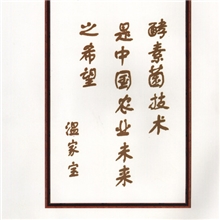 酵素菌技术
是中国农业未来
之希望
温家宝